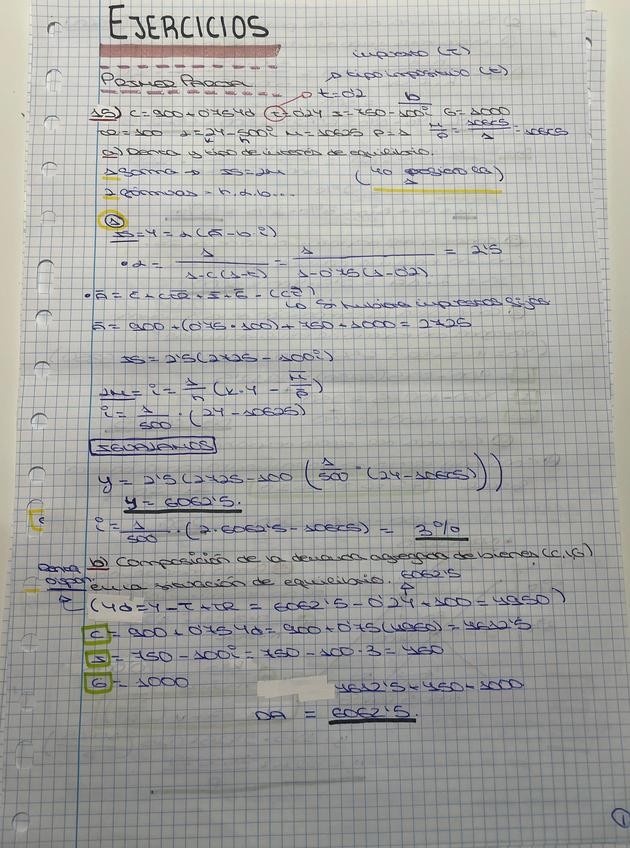 EJERCICIOS
impuesto (T)
→ tipo impositivo (t)
PRIMER PARCIAL
→ t=0'2
15) C=900+0'75Yd T=0'2Y I=750-100i G=1000
b
TR=100 L=2Y-500i M=10625 P=1 M/P = 10625/1 = 10625
k h
a) Renta y tipo de interés de equilibrio.
1 forma → IS=LM
2 fórmulas = h, α, b...
1
IS=Y=α(Ā-b·i)
·α= 1/1-c(1-t) = 1/1-0'75(1-0'2) = 2'5
·Ā=C̄+cTR+Ī+Ḡ-(cT̄)
↳ Si hubiera impuestos fijos
Ā=900+(0'75·100)+750+1000=2725
IS=2'5(2725-100i)
LM=i=1/h(k·Y-M̄/P̄)
i=1/500·(2Y-10625)
IGUALAMOS
Y=2'5(2725-100(1/500·(2Y-10625)))
Y=6062'5.
i=1/500·(2·6062'5-10625)=3%
b) Composición de la demanda agregada de bienes (C,I,G)
en la situación de equilibrio. 6062'5
Renta
dispon.
(Yd=Y-T+TR=6062'5-0'2Y+100=4950)
C=900+0'75Yd=900+0'75(4950)=4612'5
I=750-100i=750-100·3=450
G=1000
4612'5+450+1000
DA = 6062'5.
1